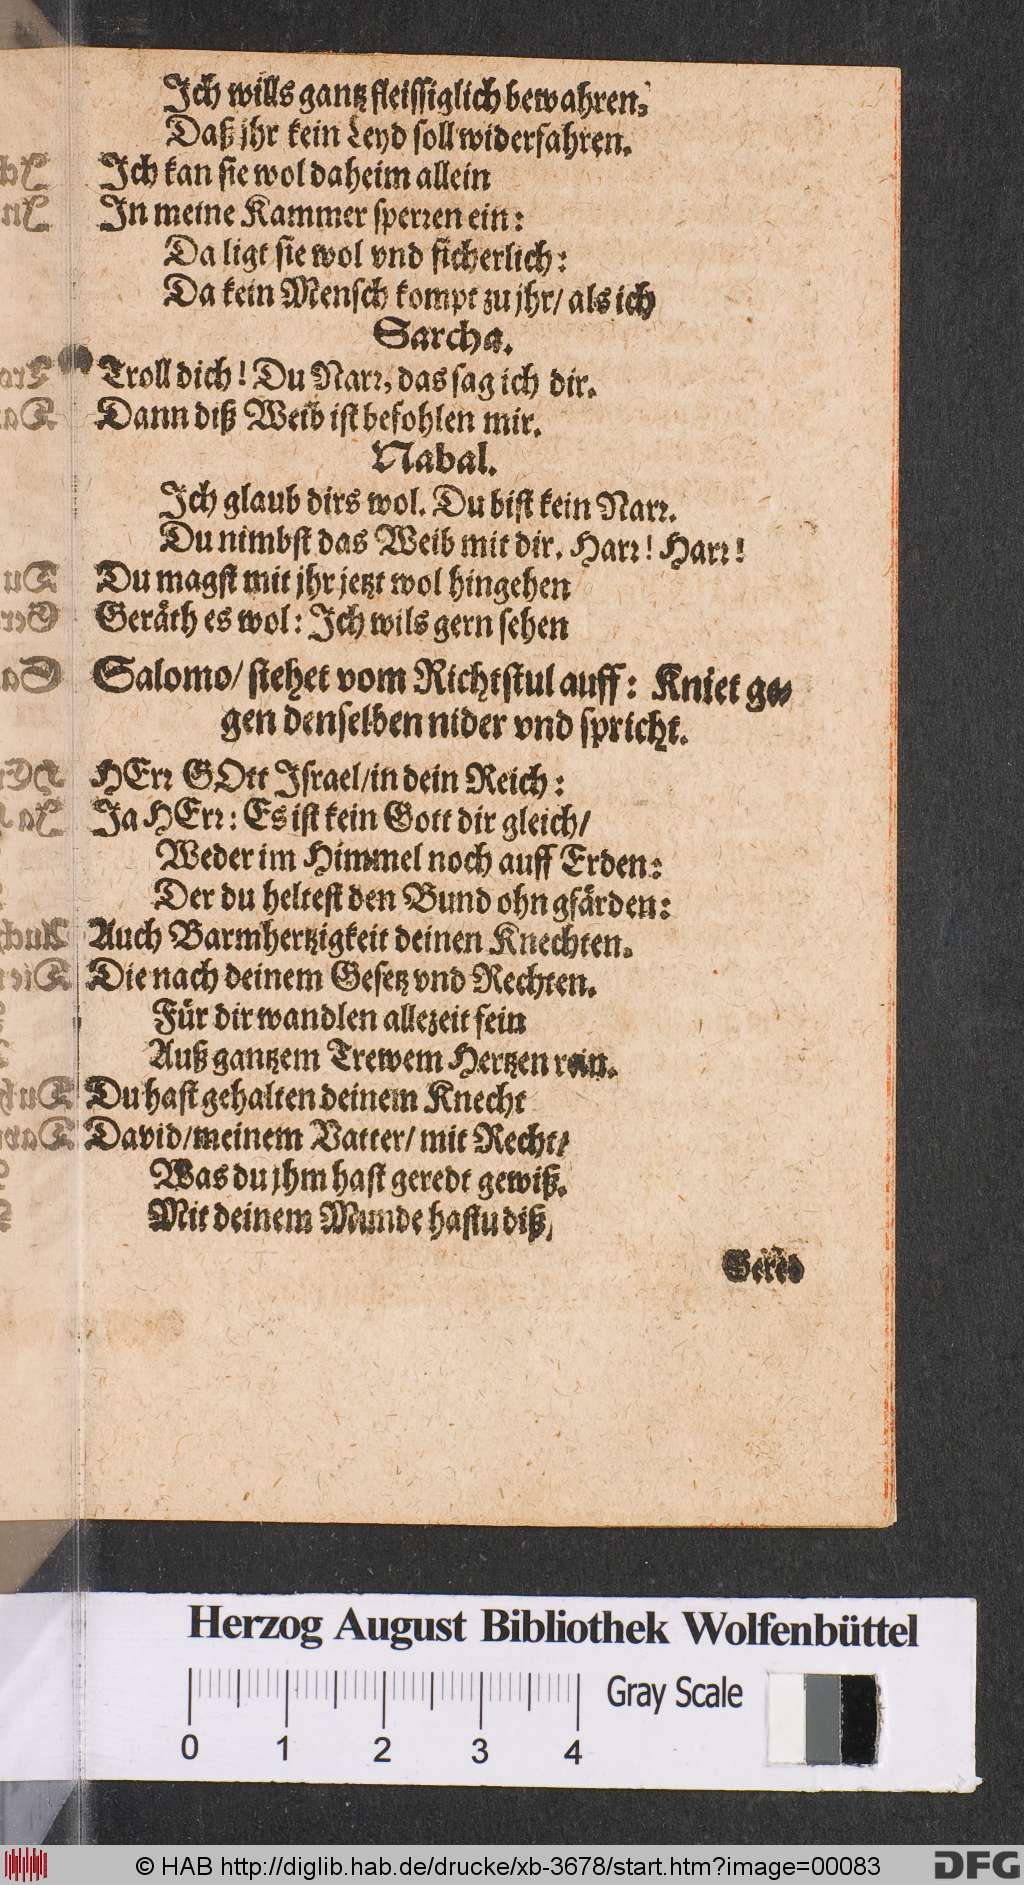 Ich wills gantz fleissiglich bewahren.
Daß jhr kein Leyd soll widerfahren.
Ich kan sie wol daheim allein
In meine Kammer sperren ein:
Da ligt sie wol vnd sicherlich:
Da kein Mensch kompt zu jhr/ als ich
Sarcha.
Troll dich! Du Narr, das sag ich dir.
Dann diß Weib ist befohlen mir.
Nabal.
Ich glaub dirs wol. Du bist kein Narr.
Du nimbst das Weib mit dir. Harr! Harr!
Du magst mit jhr jetzt wol hingehen
Geräth es wol: Ich wils gern sehen
Salomo/ stehet vom Richtstul auff: Kniet ge-
gen denselben nider vnd spricht.
HErr GOtt Israel/ in dein Reich:
Ja HErr: Es ist kein Gott dir gleich/
Weder im Himmel noch auff Erden:
Der du heltest den Bund ohn gfärden:
Auch Barmhertzigkeit deinen Knechten.
Die nach deinem Gesetz vnd Rechten.
Für dir wandlen allezeit fein
Auß gantzem Trewem Hertzen rein.
Du hast gehalten deinem Knecht
David/ meinem Vatter/ mit Recht/
Was du jhm hast geredt gewiß.
Mit deinem Munde hastu diß/
Gered
Herzog August Bibliothek Wolfenbüttel
Gray Scale
0 1 2 3 4
© HAB http://diglib.hab.de/drucke/xb-3678/start.htm?image=00083
DFG